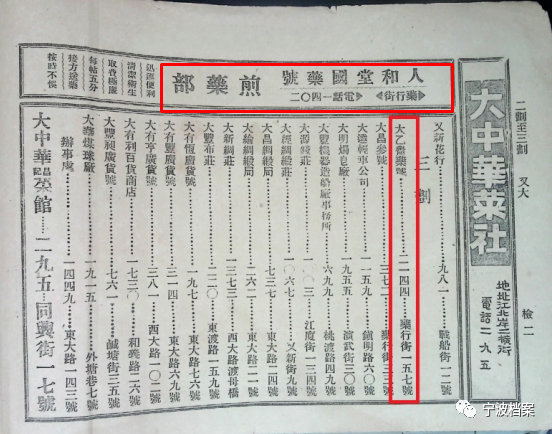 二劃至三劃 又大 檢二
大中華菜社
地址江北岸二橫街
電話二九五
人和堂國藥號 煎藥部
藥行街
電話一四〇二
迅速便利
清潔衛生
取費極廉
每帖五分
接方送藥
按時不悞
又新花行 九八一 戰船街一二號
三劃
大乙齋藥號 二一四四 藥行街一五七號
大昌參號 三七二 藥行街三三號
大達輕車公司 一五五九 鎮明路六〇號
大明燭皂廠 一九五五 演武街三〇號
大豐機器造船廠事務所 六九九 桃渡路四〇號
大源錢莊 一〇三 江廈街一三四號
大經綢緞莊 一〇六七 又新街九號
大昌綢緞局 七三七 東大路二四號
大綸綢緞局 二六二 東大路一六號
大新綢莊 一三七三 西大路渡母橋
大豐布莊 二二〇 東渡路一五九號
大有恆廣貨號 一九七 東大路七六號
大有豐廣貨號 三一四 東大路六九號
大有亨廣貨號 三八一 西大路一〇二號
大有利百貨商店 一七三〇 和義路二六號
大豐昶廣貨號 七六一 鹹塘街三五號
大華煤球廠 一九一五 外塘巷七號
辦事處 一四四九 東大路一四三號
大中華昌記菜館 二九五 同興街一七號
宁波档案